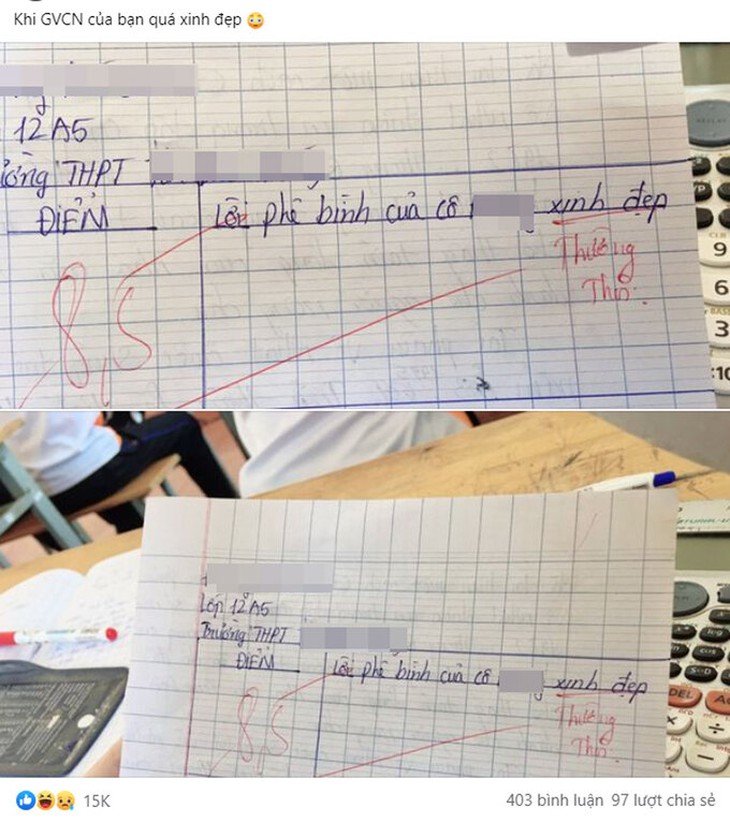 Khi GVCN của bạn quá xinh đẹp 😳
12A5
ường THPT
ĐIỂM
Lời phê bình của cô xinh đẹp
8,5
Thường
Thôi.
9
6
3
Lớp 12A5
Trường THPT
ĐIỂM
Lời phê bình của cô xinh đẹp
8,5
Thường
Thôi.
DEL
15K
403 bình luận 97 lượt chia sẻ